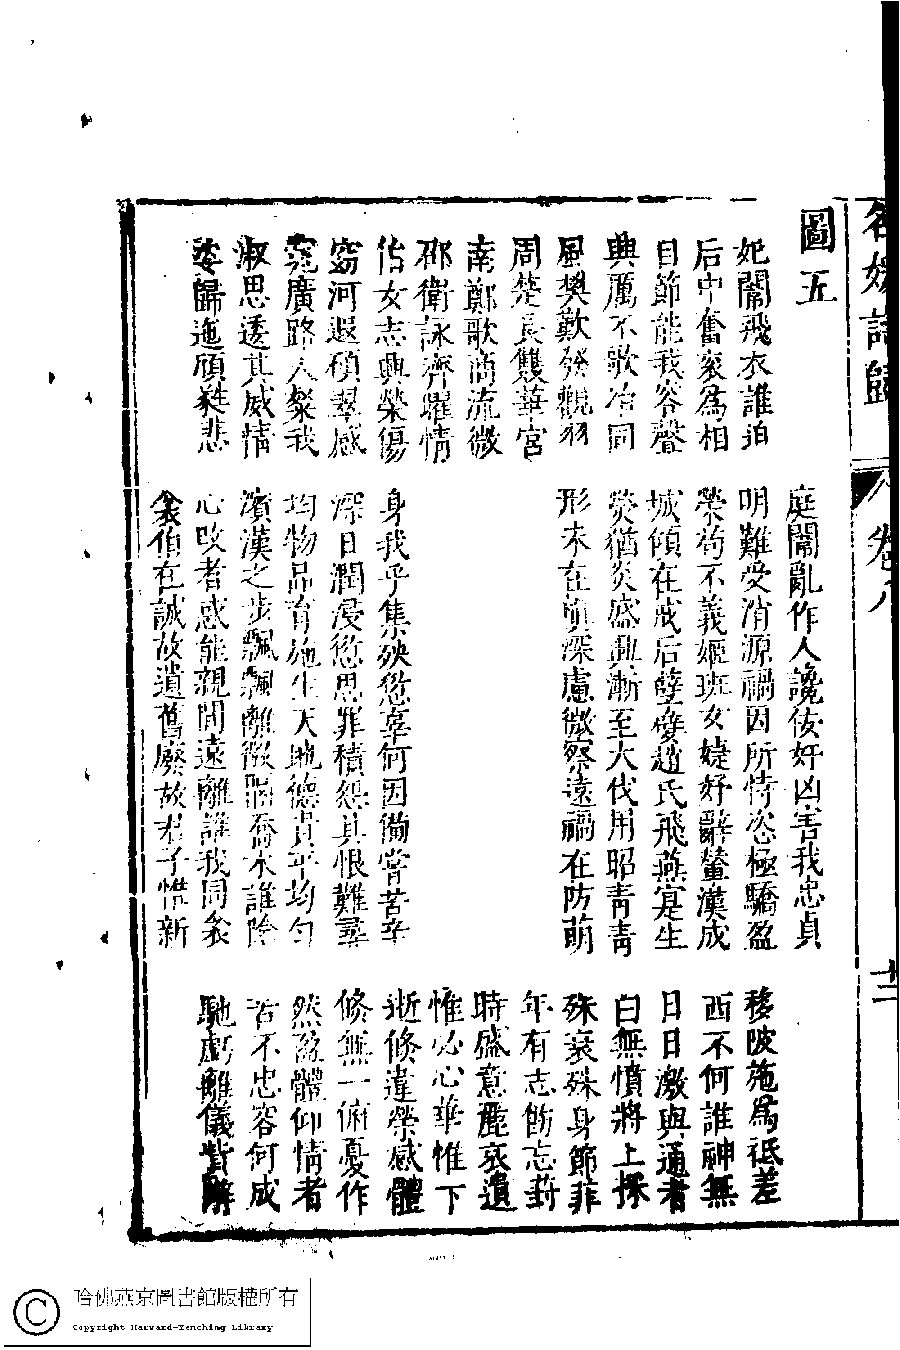 名媛詩歸
卷八
圖五
妃闈飛衣誰追
后中奮袞為相
目節能我容聲
興厲不歌冶同
風樊歎發觀羽
周楚長雙華宮
南鄭歌商流微
邵衛詠齊曜情
伯女志興榮傷
窈河遐碩翠感
窕廣路人粲我
淑思逶其威情
姿歸迤頎蕤悲
庭闈亂作人讒佞奸凶害我忠貞
明難受消源禍因所恃恣極驕盈
榮苟不義姬班女婕妤辭輦漢成
城傾在戒后孽嬖趙氏飛燕寔生
熒猶炎盛興漸至大伐用昭青青
形未在慎深慮微察遠禍在防萌
身我乎集殃愆辜何因備嘗苦辛
深日潤浸愆思罪積怨其恨難尋
均物品育施生天地德貴平均勻
濱漢之步飄飄離微隔喬木誰陰
心改者惑能親聞遠離誰我同衾
衾伯在誠故遺舊廢故君子惟新
移陂施為祗差
西不何誰神無
日日激與通者
白無憤將上採
殊衰殊身節菲
年有志飭忘葑
時盛意麗哀遺
惟必心華惟下
逝倏違榮感體
倏無一俯憂作
然盈體仰情者
苦不忠容何成
馳虧離儀辭
哈佛燕京圖書館版權所有
Copyright Harvard-Yenching Library